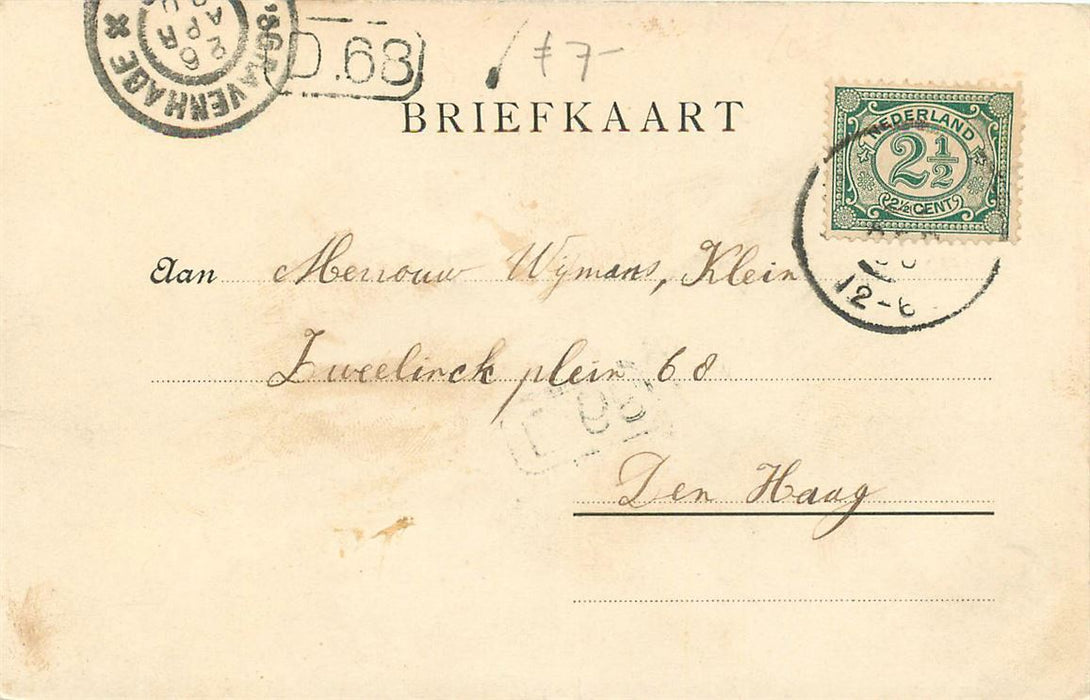 'SGRAVENHAGE
D.68
7-
BRIEFKAART
NEDERLAND
2½
2½ CENT
12-6
Aan Mevrouw Wijmans, Klein
Zweelinck plein 68
Den Haag